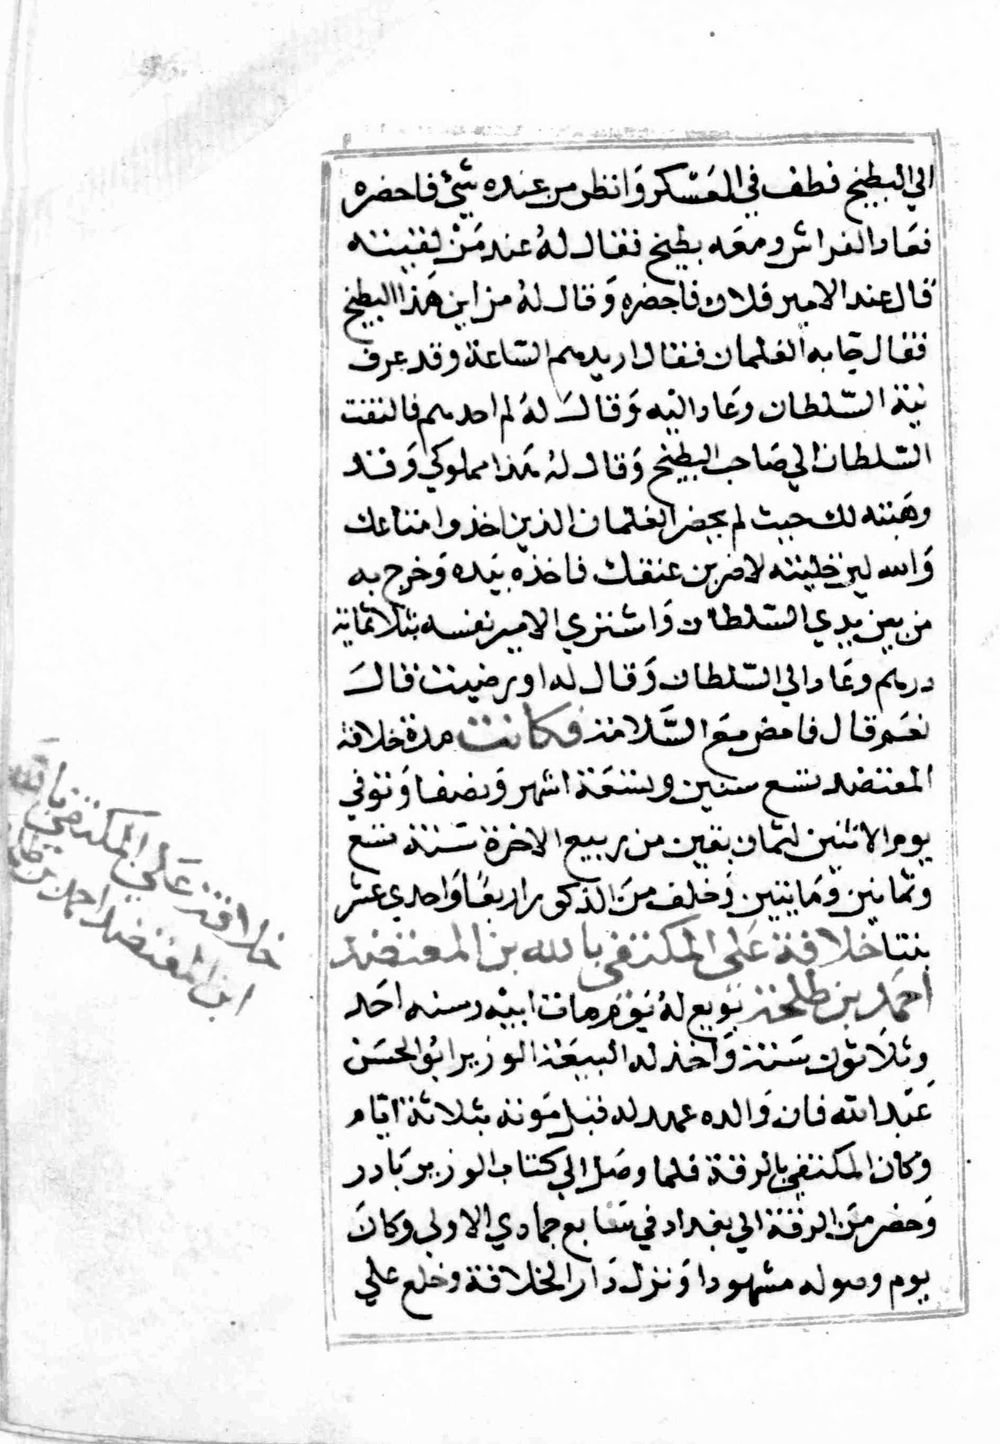 الي البطيخ فطف في العَسْكر وَانظر من عنده شيْ فاحضره
فعَاد الفراش ومعَه بطيخ فقال لهُ عند مَنْ لقيته
قال عند الامير فلان فاحضره وَقال لهُ من اين هَذا البطيخ
فقال جَابه الغلمان فقال اريدهم السَّاعة وقد عرف
نيّة السّلطان وعَاد اليْه وَقالَ لهُ لم احدهم فالتفت
السّلطان الي صَاحب البطيخ وَقال لهُ هَذا مملوكي وَقد
وهَبته لك حيث لم يحضر الغلمان الذين اخذوا متاعك
وَالله لين خليته لاضربن عنقك فاخذه بيَده وَخرج به
من بين يدي السّلطان وَاشتري الامير نفسه بثلاثماية
درهم وعَاد الي السّلطان وَقال له اورضيت قالَ
نعَم قال فامض مَع السَّلامة فكانت مدة خلافة
المعتضد تسع سنين وتسعَة اشهر وَنصفا وَتوفي
يوم الاثنين لثمان بقين من ربيع الاخرة سَنة تسع
وثمانين وَمايتين وَخلف منَ الذكور اربعًا وَاحدي عشر
بنتا خلافة عَلي المكتفي بالله بن المعتضد
احمَد بن طلحة بويع لهُ يَوم مات ابيْه وسنه احَد
وثلاثون سَنة وَاخذ له البيعَة الوزير ابُو الحسَن
عَبْد الله فان وَالده عهد له قبل مَوته بثلاثة ايَّام
وكان المكتفي بالرقة فلما وصَل الي كتاب الوزير بَادر
وَحضر منَ الرقة الي بغداد في سَابع جمادي الاولي وكانَ
يوم وصوله مشهودا وَنزل دَار الخلافة وخلع علي
خلافة عَلي المكتفي بالله
ابن المعتضد احمد بن